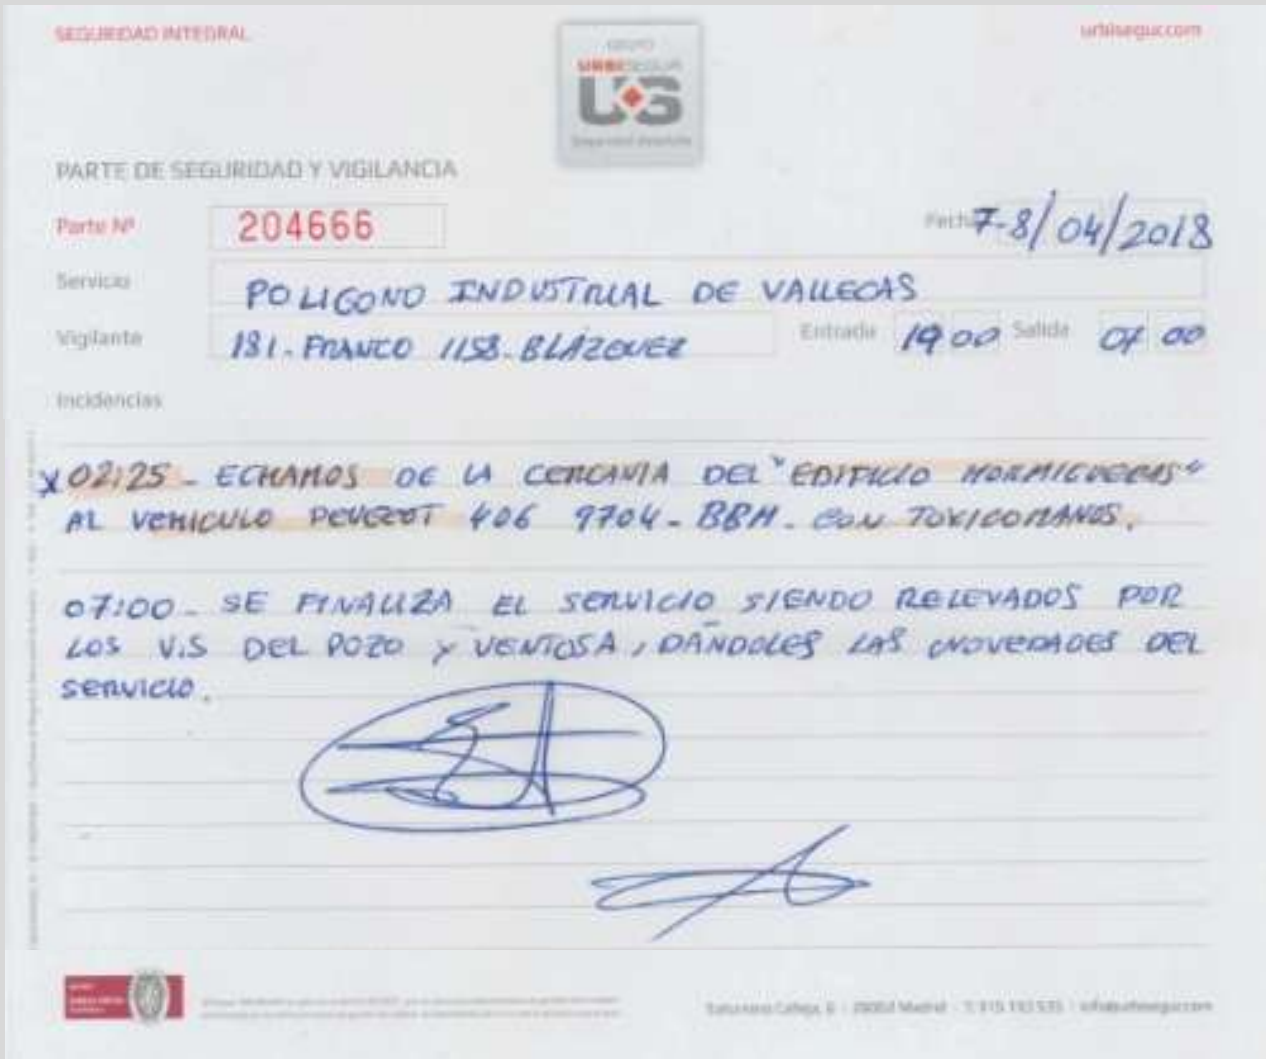 SEGURIDAD INTEGRAL
urbisegur.com
GRUPO
URBISEGUR
UG
PARTE DE SEGURIDAD Y VIGILANCIA
Parte Nº 204666
Fecha 7-8/04/2018
Servicio POLIGONO INDUSTRIAL DE VALLECAS
Vigilante 181-FRANCO 1158-BLÁZQUEZ Entrada 19 00 Salida 07 00
Incidencias
x 02:25 - ECHAMOS DE LA CERCANIA DEL "EDIFICIO HORMIGUERAS"
AL VEHICULO PEUGEOT 406 9704-BBM- CON TOXICOMANOS.
07:00 - SE FINALIZA EL SERVICIO SIENDO RELEVADOS POR
LOS V.S DEL POZO Y VENTOSA, DÁNDOLES LAS NOVEDADES DEL
SERVICIO.